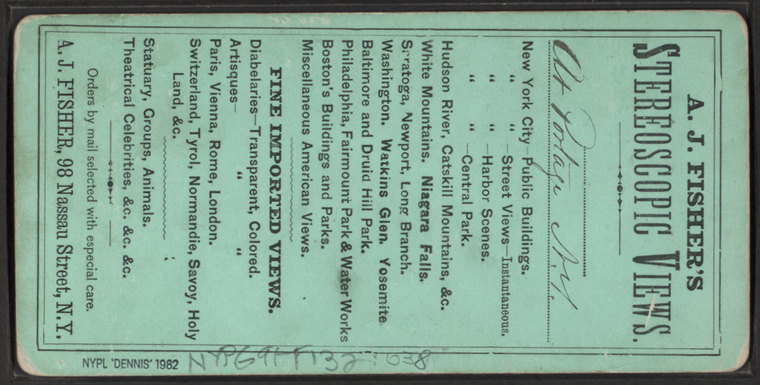 A. J. FISHER'S
STEREOSCOPIC VIEWS.
At Portage N.Y.
New York City—Public Buildings.
" " —Street Views—Instantaneous.
" " —Harbor Scenes.
" " —Central Park.
Hudson River, Catskill Mountains, &c.
White Mountains. Niagara Falls.
Saratoga, Newport, Long Branch.
Washington. Watkins Glen. Yosemite
Baltimore and Druid Hill Park.
Philadelphia, Fairmount Park & Water Works
Boston's Buildings and Parks.
Miscellaneous American Views.
FINE IMPORTED VIEWS.
Diabelaries—Transparent, Colored.
Artisques— " "
Paris, Vienna, Rome, London.
Switzerland, Tyrol, Normandie, Savoy, Holy
Land, &c.
Statuary, Groups, Animals.
Theatrical Celebrities, &c. &c. &c.
Orders by mail selected with especial care.
A. J. FISHER, 98 Nassau Street, N.Y.
NYPL 'DENNIS' 1982 NYPG91-F132 : 038